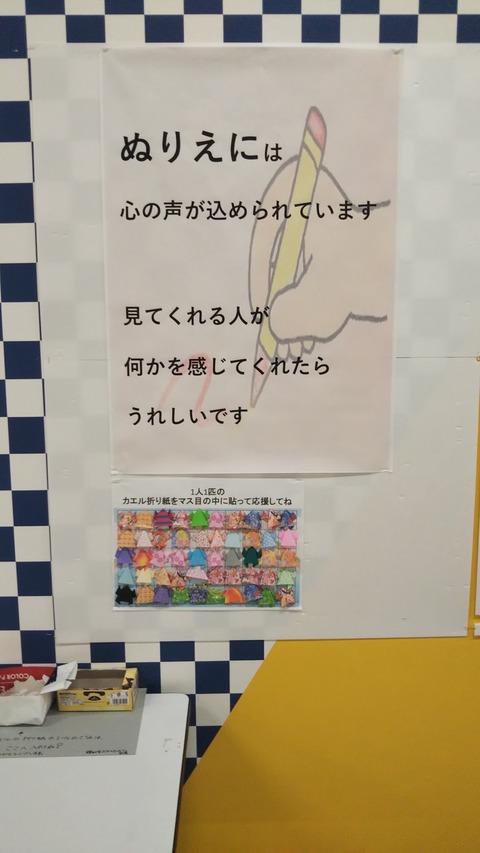 ぬりえには
心の声が込められています
見てくれる人が
何かを感じてくれたら
うれしいです
1人1匹の
カエル折り紙をマス目の中に貼って応援してね
COLOR